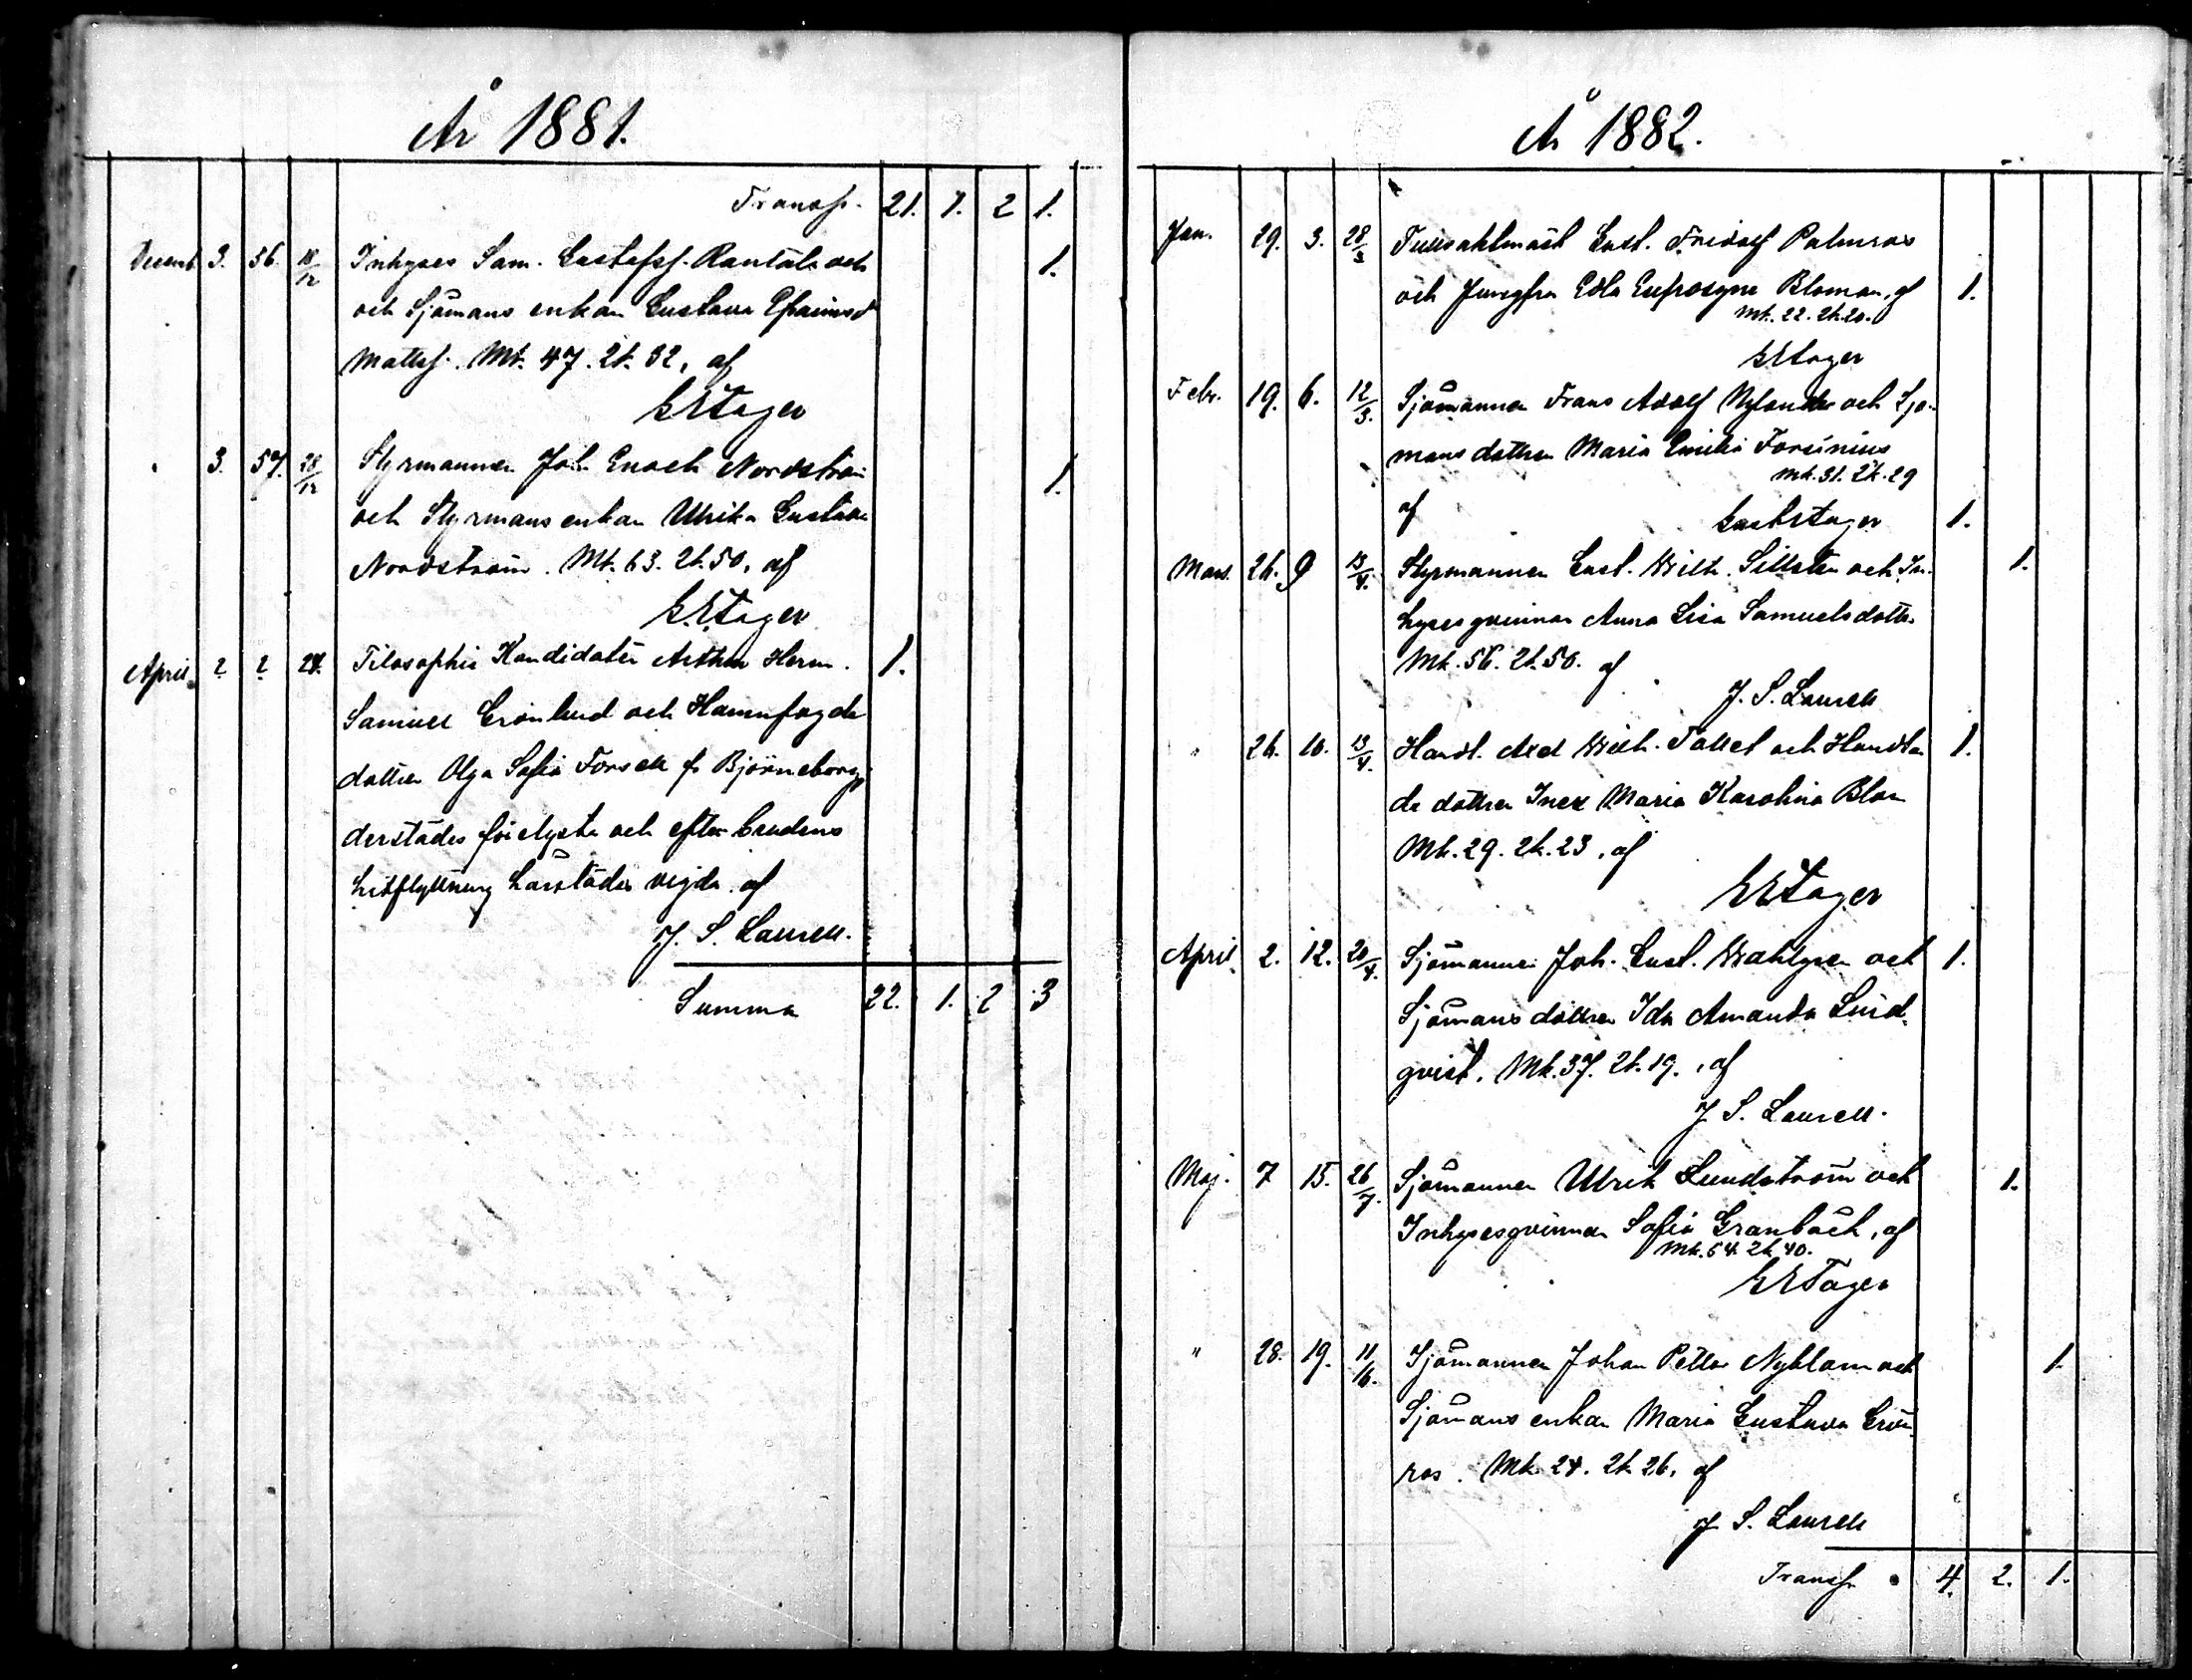 År 1881.
Transp. 21. 1. 2 1.
Decemb. 3. 56. 18/12 Inhyses Sam. Gustafsf. Rantala och 1.
och Sjömans enkan Gustava Efraimsd
Mattsf. Mk. 47. 2k. 32, af
GETager
3. 57. 28/12 Styrmannen Joh. Enoch Nordström 1.
och Styrmans enkan Ulrika Gustava
Nordström. Mk. 63. 2k. 50, af
G.E.Tager
April 2 2 24. Filosophie Kandidaten Arthur Herm. 1.
Samuel Grönlund och Hamnfogde
dottren Olga Sofia Forsell fr Björneborg,
derstädes förelysta och efter brudens
hitflyttning härstädes vigda af
J. S. Laurell.
Summa 22. 1. 2 3
År 1882.
Jan. 29. 3. 28/2 Tullvaktmäst. Gust. Fridolf Palmros
och Jungfru Edla Eufrosyne Bloman, af 1.
Mk. 22. 2k. 20.
GETager
Febr. 19. 6. 12/3. Sjömannen Frans Adolf Nylander och Sjö-
mans dottren Maria Emilia Forsinius
Mk. 31. 2k. 29
af GustETager 1.
Mars. 26. 9 13/4. Styrmannen Gust. Wilh. Sillsten och In- 1.
hysesqvinnan Anna Lisa Samuelsdotter
Mk. 56. 2k. 50. af
J. S. Laurell
" 26. 10. 13/4. Handl. Axel Wilh. Tallel och Handlan 1.
de dottren Inez Maria Karolina Blom
Mk. 29. 2k. 23, af
GETager
April 2. 12. 20/4. Sjömannen Joh. Gust. Wahlgren och 1.
Sjömans dottren Ida Amanda Lind-
qvist. Mk. 37. 2k. 19., af
J S. Laurell.
Maj. 7 15. 26/7. Sjömannen Ulrik Lundström och 1.
Inhysesqvinnan Sofia Granbäck, af
Mk. 54. 2k. 40.
GETager
" 28. 19. 11/6. Sjömannen Johan Petter Nyblom och 1.
Sjömans enkan Maria Gustava Grön-
ros. Mk. 24. 2k. 26, af
J. S. Laurell
Transp. 4. 2. 1.